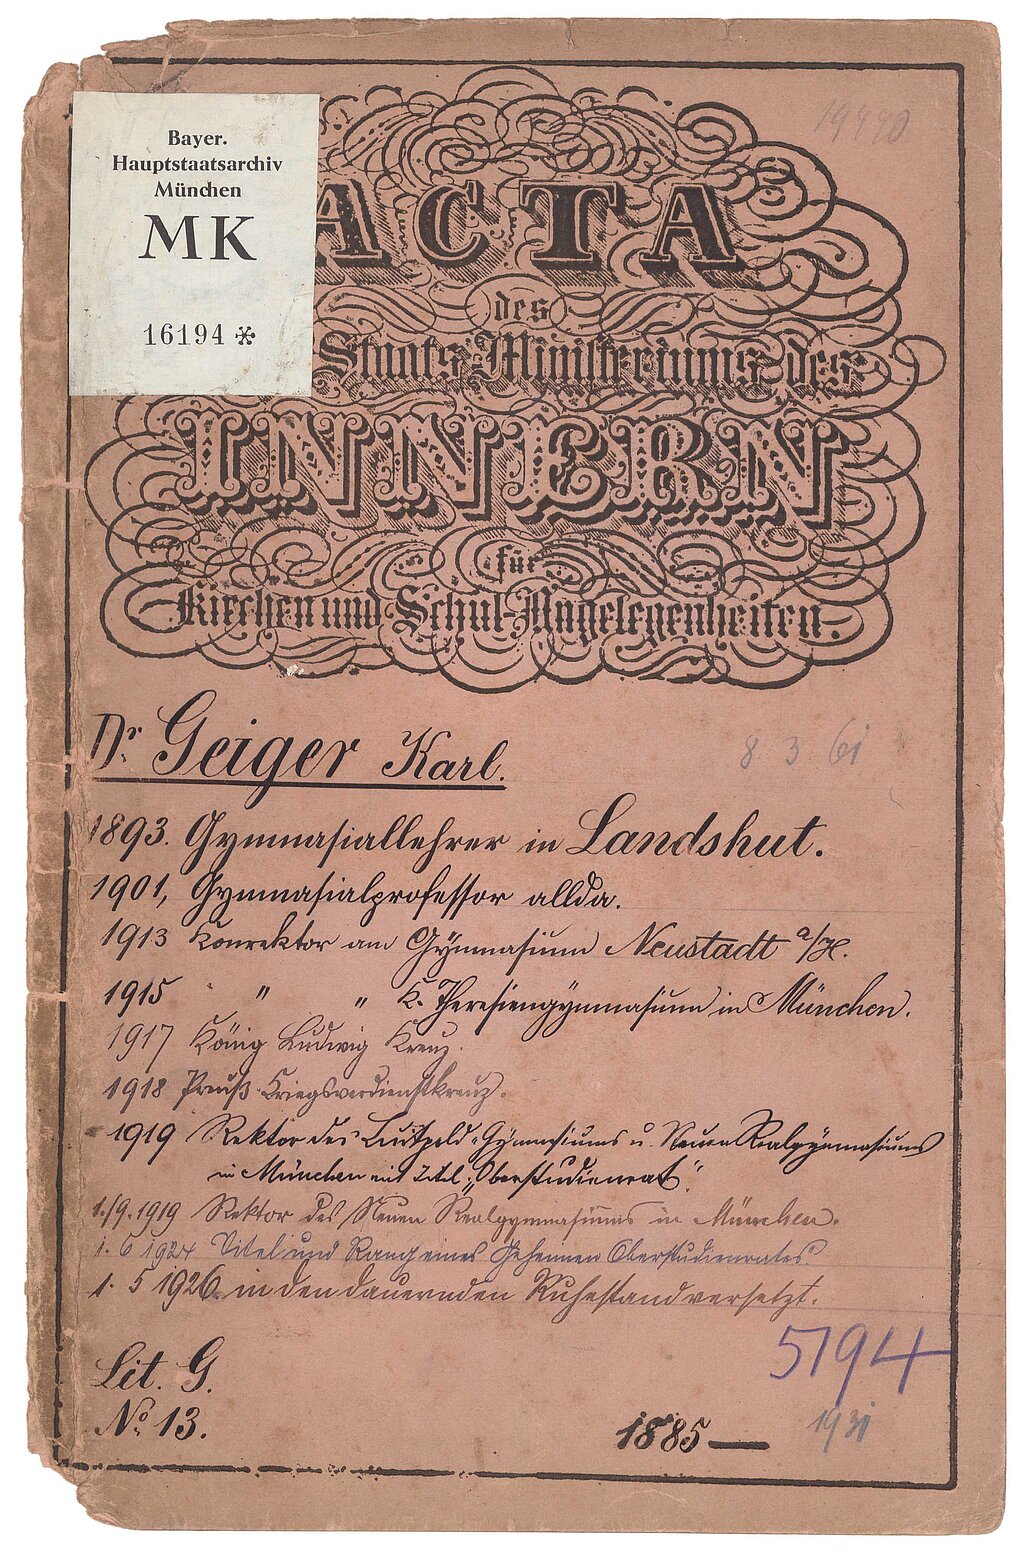 Bayer.
Hauptstaatsarchiv
München
MK
16194 *
19990
ACTA
des
Staats Ministeriums des
INNERN
für
Kirchen und Schul-Angelegenheiten.
Dr. Geiger Karl.
8 3 61
1893. Gymnasiallehrer in Landshut.
1901, Gymnasialprofessor allda.
1913 Konrektor am Gymnasium Neustadt a/H.
1915 " " K. Theresiengymnasium in München.
1917 König Ludwig Kreuz.
1918 Preuß. Kriegsverdienstkreuz.
1919 Rektor des Luitpold-Gymnasiums u. Neuen Realgymnasiums
in München mit Titel: „Oberstudienrat".
1./9.1919 Rektor des Neuen Realgymnasiums in München.
1. 6 1924 Titel und Rang eines Geheimen Oberstudienrates.
1. 5 1926. in den dauernden Ruhestand versetzt.
5194
Lit. G.
No. 13.
1885 —
1931